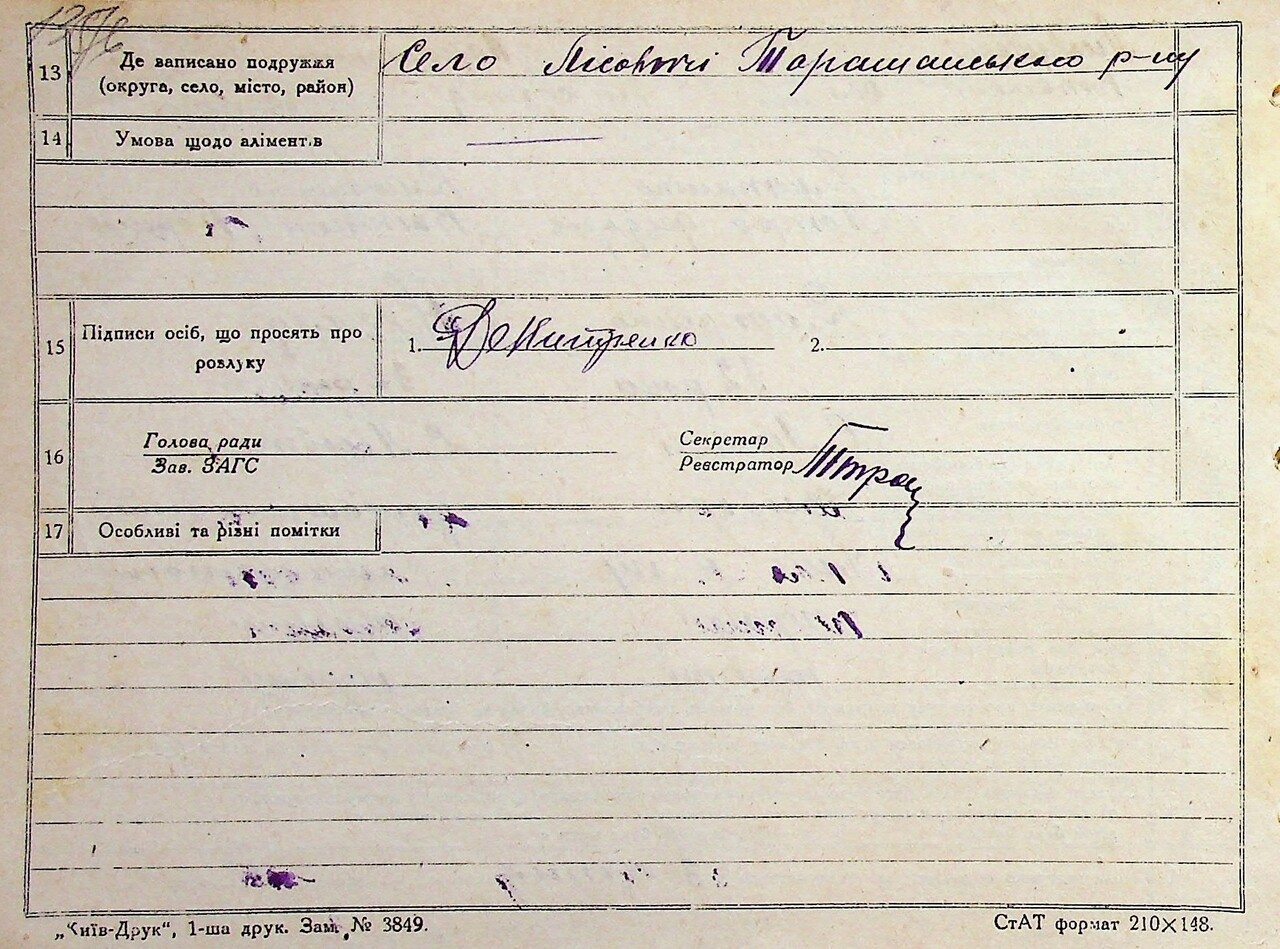 13 Де записано подружжя
(округа, село, місто, район)
Село Лісовичі Таращанського р-ну
14 Умова щодо аліментів
15 Підписи осіб, що просять про
розлуку
1. 2.
16 Голова ради
Зав. ЗАГС
Секретар
Реєстратор
17 Особливі та різні помітки
„Київ-Друк“, 1-ша друк. Зам. № 3849.
СтАТ формат 210×148.